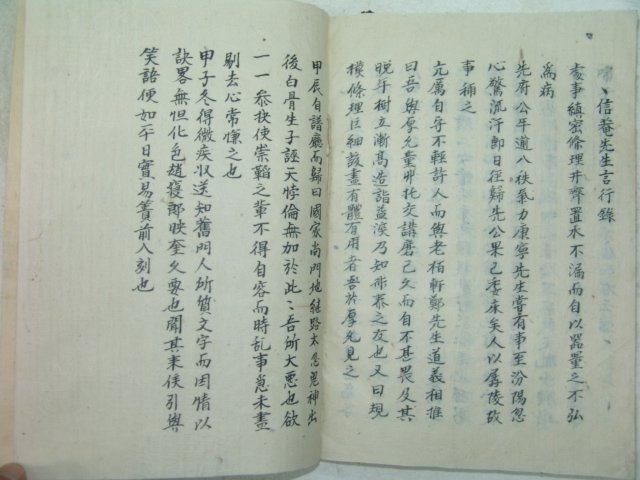 信菴先生言行錄
處事縝密條理井齊置水不漏而自以器量之不弘
爲病
先府公年逾八秩氣力康寧先生嘗有事至汾陽忽
心驚流汗卽日徑歸先公果已委床矣人以孱陵故
事稱之
亢厲自守不輕許人而與老栢軒鄭先生道義相推
曰吾與厚允量中托交講磨已久而自不甚畏及其
晩年樹立漸高造詣益深乃知非泰之友也又曰規
模條理巨細該盡有體有用者吾於厚允見之
甲辰自譜廳而歸曰國家尙門地継路太忽鬼神出
後白骨生子誣天悖倫無加於此吾所大惡也欲
一一黍抉使崇韜之軰不得自容而時乱事急未盡
剔去心常慊之也
甲子冬得微疾収送知舊門人所質文字而因情以
訣畧無怛化色趙復郎映奎久要也聞其来倭引與
笑語便如平日實易簀前入刻也